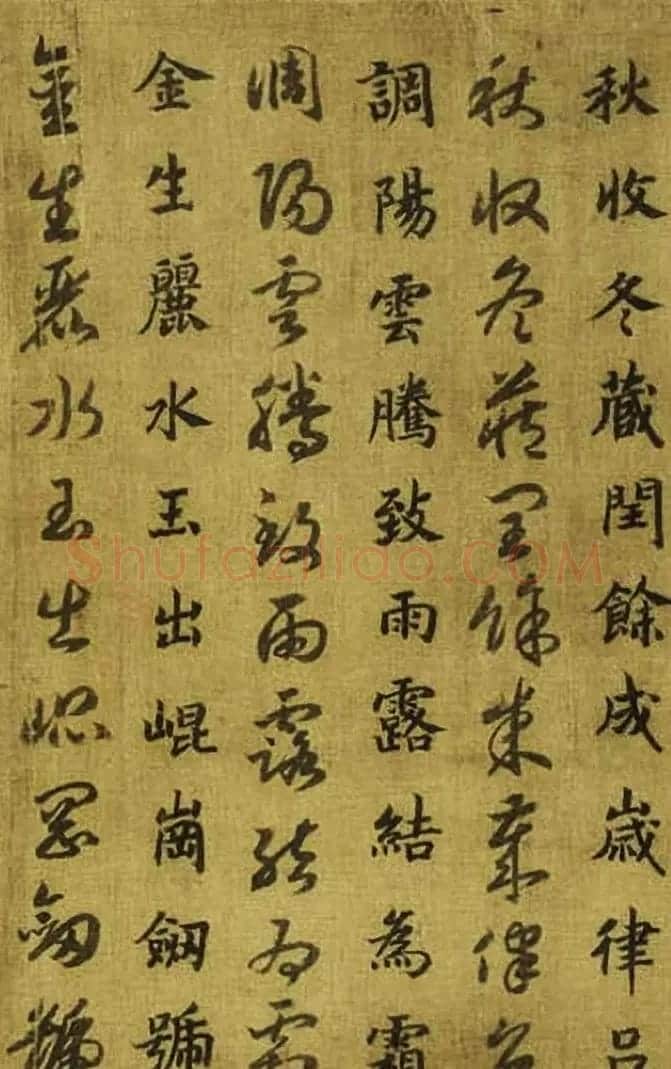 秋收冬藏閏餘成歲律呂
秋收冬藏閏餘成歲律呂
調陽雲騰致雨露結為霜
調陽雲騰致雨露結為霜
金生麗水玉出崐崗劒號
金生麗水玉出崐崗劒號
Shufaziliao.COM